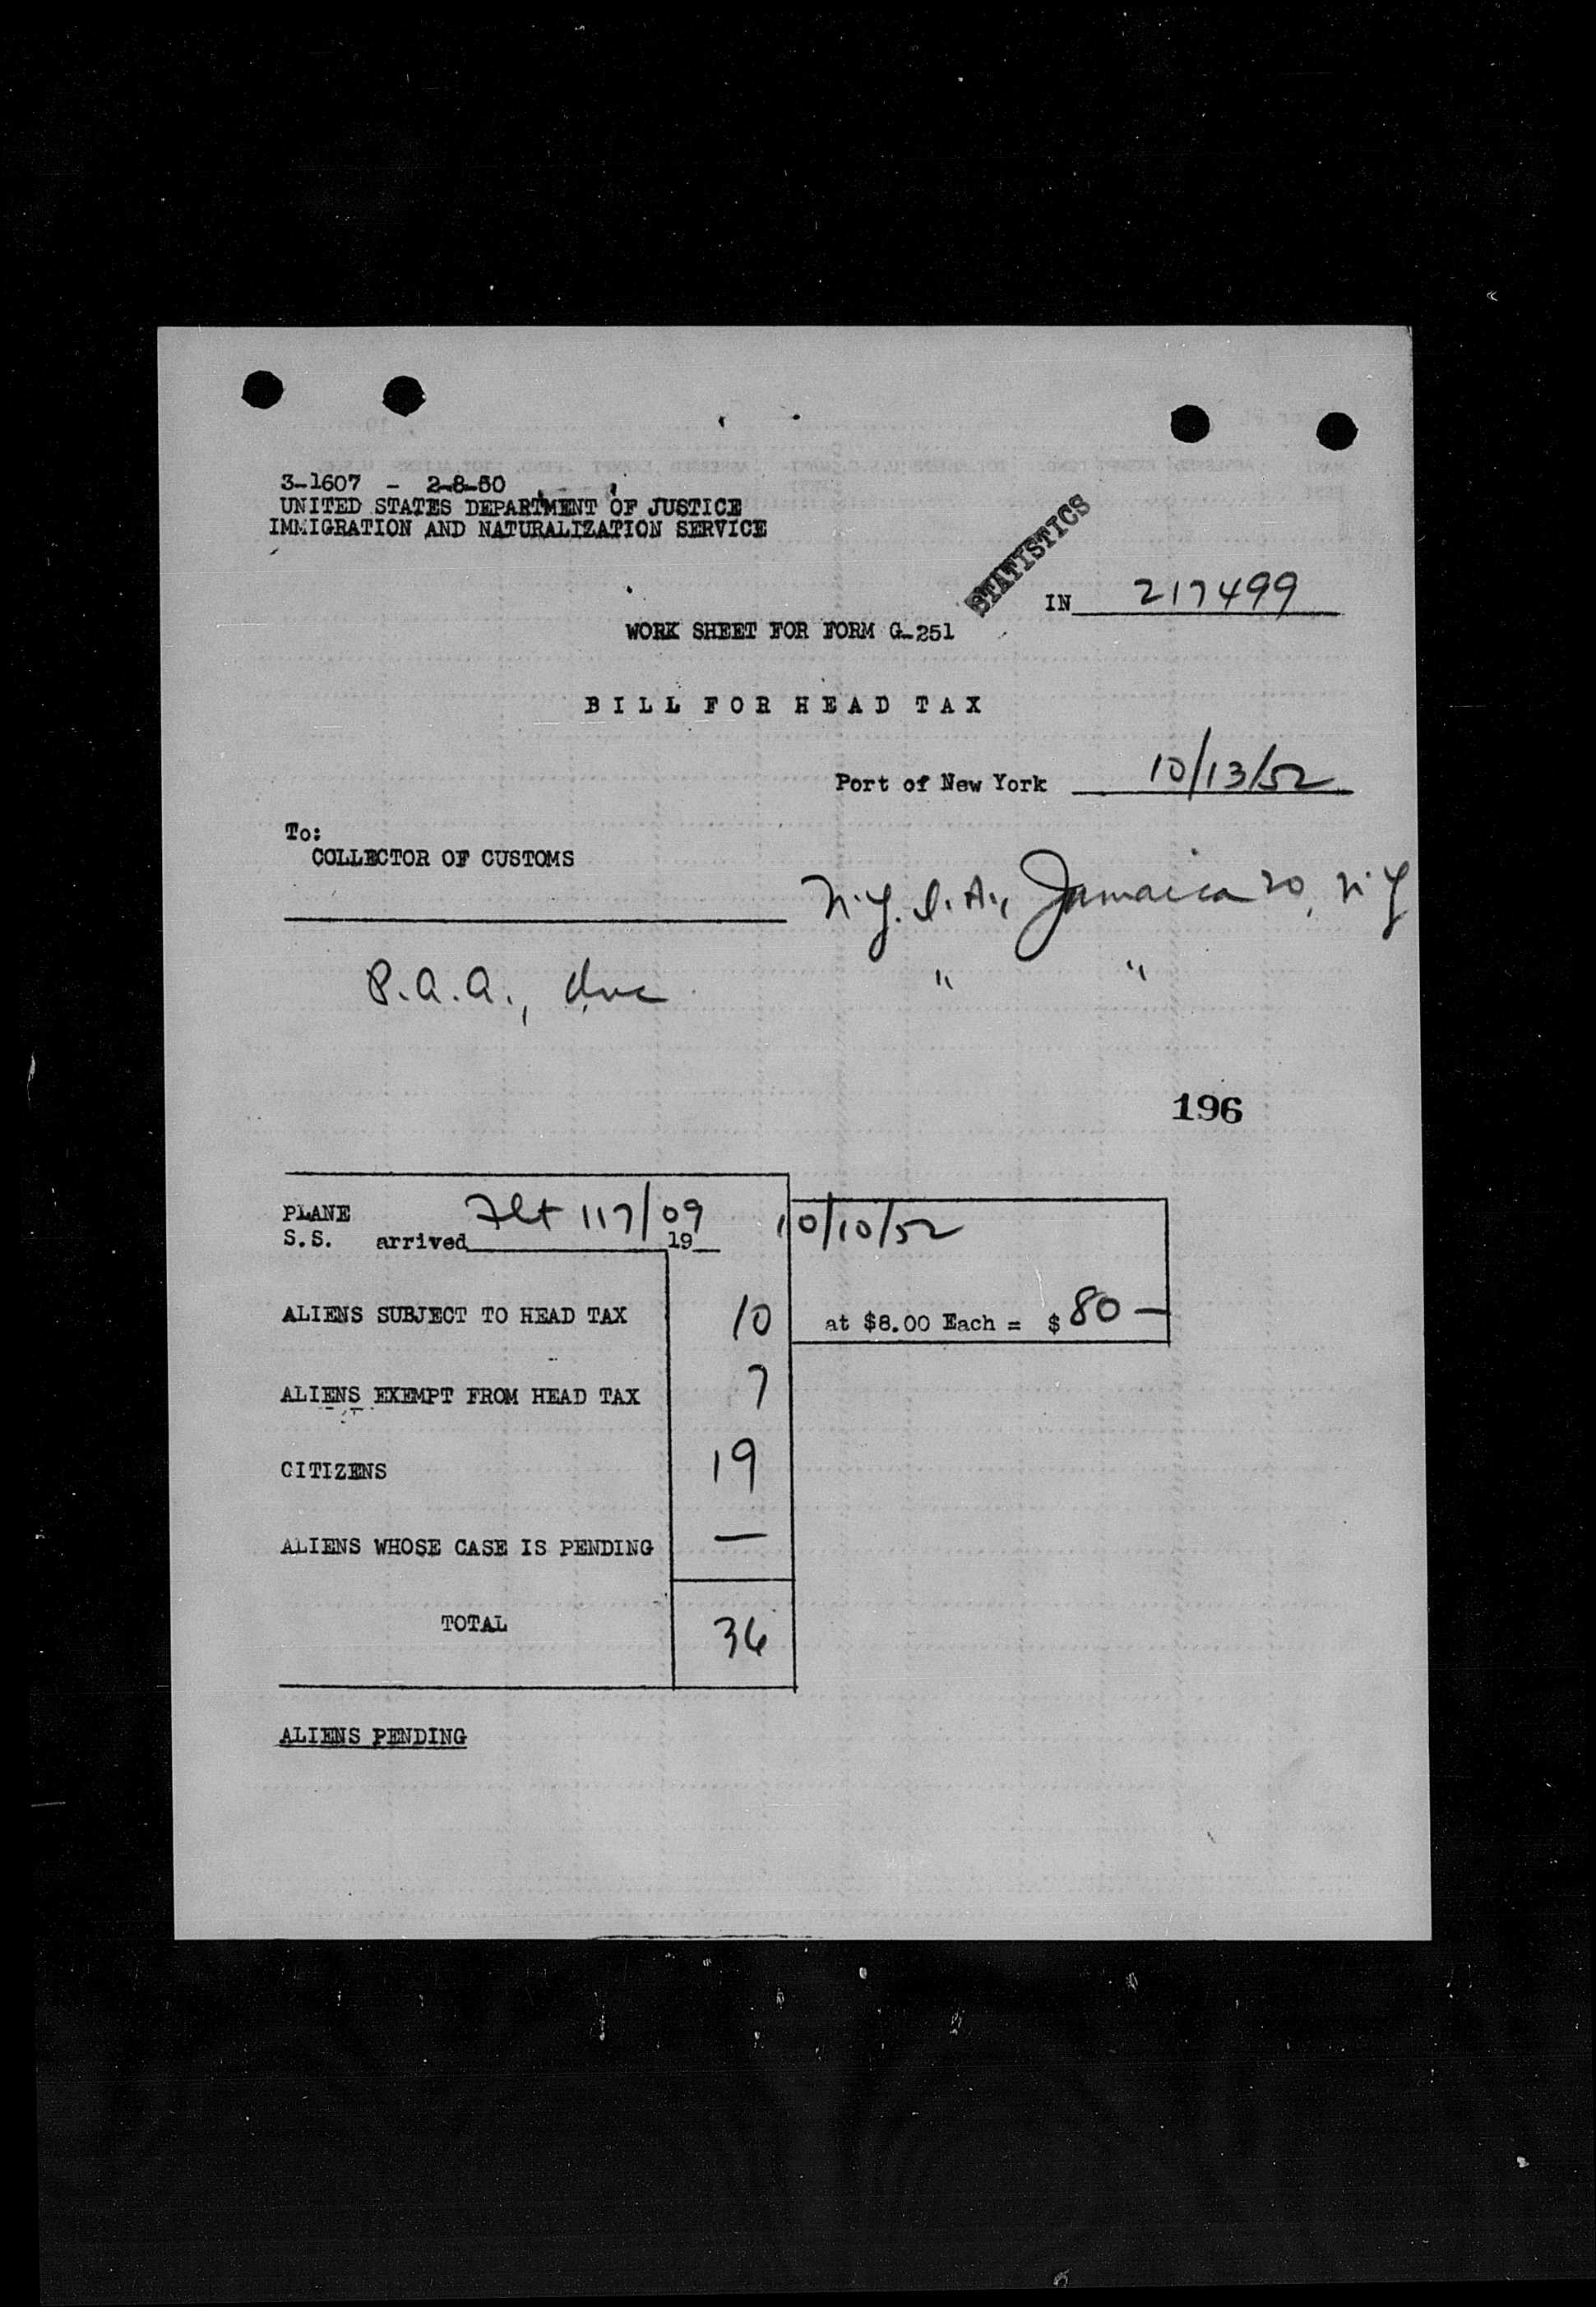 3-1607 - 2-8-50
UNITED STATES DEPARTMENT OF JUSTICE
IMMIGRATION AND NATURALIZATION SERVICE
STATISTICS
IN 217499
WORK SHEET FOR FORM G-251
BILL FOR HEAD TAX
Port of New York 10/13/52
To:
COLLECTOR OF CUSTOMS
N.Y. I. A., Jamaica 20, N.Y
P.A.A., Inc " "
196
PLANE Flt 117/09 10/10/52
S.S. arrived 19
ALIENS SUBJECT TO HEAD TAX 10 at $8.00 Each = $ 80 —
ALIENS EXEMPT FROM HEAD TAX 7
CITIZENS 19
ALIENS WHOSE CASE IS PENDING —
TOTAL 36
ALIENS PENDING